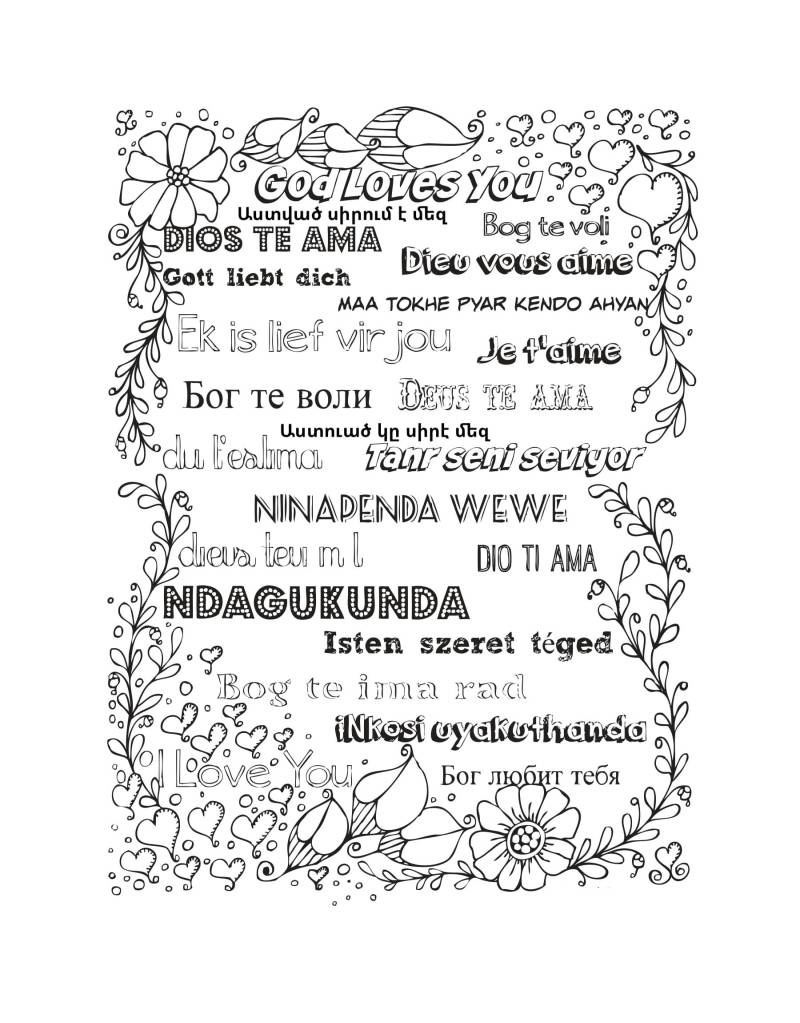 God Loves You
Աստված սիրում է մեզ
Bog te voli
DIOS TE AMA
Dieu vous aime
Gott liebt dich
MAA TOKHE PYAR KENDO AHYAN
Ek is lief vir jou
Je t'aime
Бог те воли
DEUS TE AMA
Աստուած կը սիրէ մեզ
du t'estima
Tanr seni seviyor
NINAPENDA WEWE
dieus teu m l
DIO TI AMA
NDAGUKUNDA
Isten szeret téged
Bog te ima rad
iNkosi uyakuthanda
I Love You
Бог любит тебя